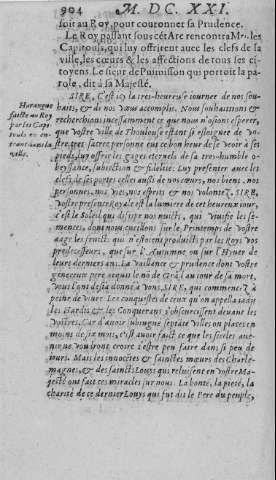 904 M. DC. XXI.
soit au Roy, pour couronner sa Prudence.
Le Roy passant sous cét Arc rencontra Mrs. les
Capitouls, qui luy offrirent auec les clefs de sa
ville, les cœurs & les affections de tous ses ci-
toyens. Le sieur de Puimisson qui portoit la pa-
role, dit à sa Majesté.
Harangue
faicte au Roy
par les Capi-
touls en en-
trant dans la
ville.
SIRE, C'est icy la tres-heureuse iournee de nos sou-
haits, & de nos vœux accomplis. Nous souhaittions &
recherchions incessamment ce que nous n'osions esperer,
que vostre ville de Thoulouse estant si esloignee de vo-
stre tres sacree personne eut ce bon heur de se veoir à ses
pieds, luy offrir les gages eternels de sa tres-humble o-
beyssance, subiection & fidelité: Luy presenter auec les
clefs de ses portes celles aussi de nos cœurs, nos biens, nos
personnes, nos vies, nos esprits & nos volontez. SIRE,
Vostre presence Royale est la lumiere de cét heureux iour,
c'est le Soleil qui dissipe nos nuicts, qui viuifie les se-
mences, dont nous cueillons sur le Printemps de vostre
aage les fruicts qui n'estoient produicts par les Roys vos
predecesseurs, que sur l'Automne ou sur l'Hyuer de
leurs derniers ans. La vaillance & prudence dont vostre
genereux pere acquit le nõ de Grãd au iour de sa mort,
vous l'ont desia donné à vous, SIRE, qui commencez à
peine de viure. Les conquestes de ceux qu'on appella iadis
les Hardis & les Conquerans s'obscurcissent deuant les
vostres. Car d'auoir subiugué septãte villes ou places en
moins de six mois, c'est auoir faict ce que les siecles aue-
nir ne voudront croire s'estre peu faire dans si peu de
iours. Mais les innocẽtes & sainctes mœurs des Charle-
magnes, & des saincts Louys qui reluisent en vostre Ma-
jesté ont fait ces miracles sur nous. La bonté, la pieté, la
charité de ce dernier Louys qui fut dit le Pere du peuple,